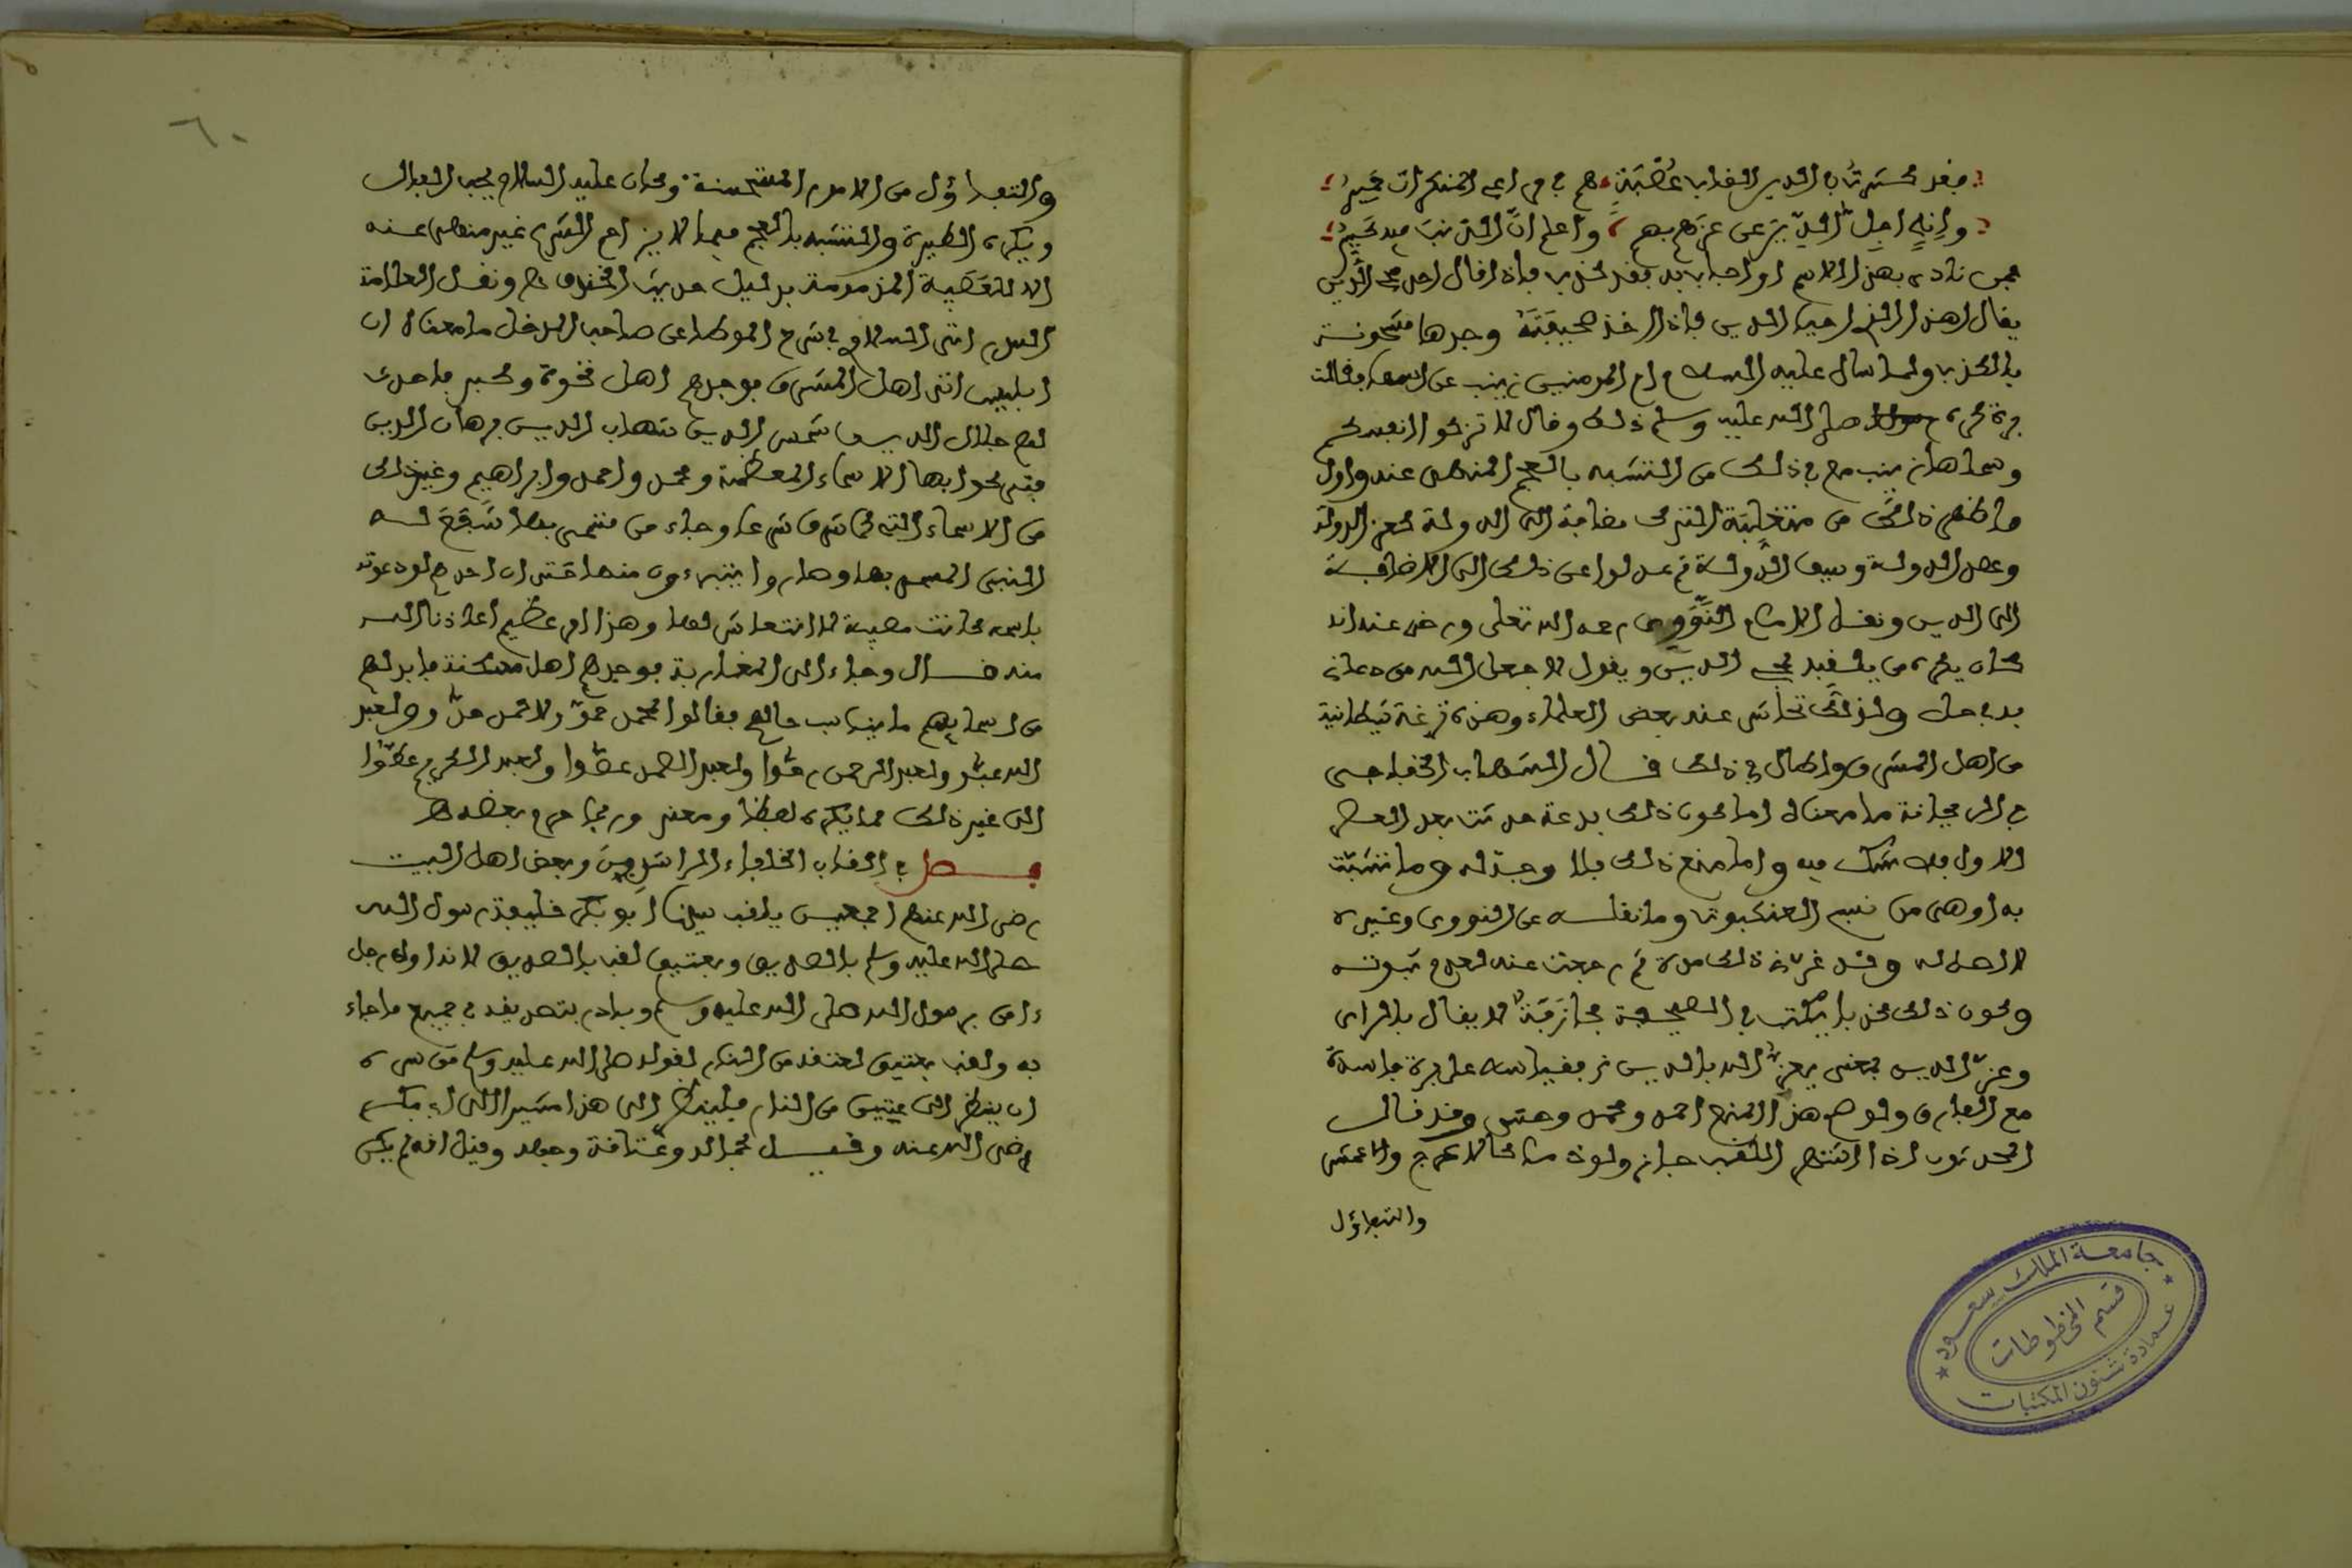 فقد كثرت في الدين القاب عصبة هم في مراعي المنكرات حمير
وإني اجل الدين عن عزهم بهم واعلم ان الذنب فيه كبير
فمن نادى بهذا الاسم او اجاب به فقد كذب فاذا قال احد محي الدين
يقال اهذا الذي احيا الدين فاذا اخذ صحيفته وجدها مشحونة
بالكذب ولما سال عليه السلام ام المومنين زينب عن اسمها فقالت
برة كره صلى الله عليه وسلم ذلك وقال لا تزكوا انفسكم
وسماها زينب مع في ذلك من التشبه بالعجم المنهي عنه واول
ما ظهر ذلك من متغلبة الترك مضافة الى الدولة كمعز الدولة
وعضد الدولة وسيف الدولة ثم عدلوا عن ذلك الى الاضافة
الى الدين ونقل الامام النووي رحمه الله تعلى ورضي عنه انه
كان يكره من يلقبه بمحي الدين ويقول لا جعل الله من دعاني
به في حل ولذلك تحاشى عنه بعض العلماء وهذه نزغة شيطانية
من اهل المشرق واطال في ذلك قال الشهاب الخفاجي
في الريحانة ما معناه اما كون ذلك بدعة حدثت بعد العصر
الاول فلا شك فيه واما منع ذلك فلا وجه له وما تشبث
به اوهى من نسج العنكبوت وما نقله عن النووي وغيره
لا اصل له وقد غرني ذلك مدة ثم رجعت عنه لعدم ثبوته
وكون ذلك كذبا يكتب في الصحيفة مجازفة لا يقال بالراي
وعز الدين بمعنى يعز الله بالدين فقياسه على برة فاسد
مع الفارق ولو صح هذا المنع احمد ومحمد وحسن وقد قال
المحدثون اذا اشتهر اللقب جاز ولو ذما كالاعرج والاعمش
والتفاؤل
٦٠
والتفاؤل من الامور المستحسنة وكان عليه السلام يحب الفال
ويكره الطيرة والتشبه بالعجم فيما لا يزاحم الشرع غير منهي عنه
الا للعصبية المذمومة بدليل حديث الخندق ونقل العلامة
السلاوي في شرح الموطا عن صاحب المدخل ما معناه ان
ابليس اتى اهل المشرق فوجدهم اهل نخوة وكبر فاحدث
لهم جلال الدين شمس الدين شهاب الدين برهان الدين
فتركوا بها الاسماء المعظمة ومحمد واحمد وابراهيم وغير ذلك
من الاسماء التي شرعا وجاء من تسمى بها شفع له
النبي المسمى بها وصاروا يتبرءون منها حتى ان احدهم لو دعوته
باسمه كانت مصيبة لا انتعاش لها وهذا امر عظيم اعاذنا الله
منه قال وجاء الى المغاربة فوجدهم اهل مسكنة فابدلهم
من اسمايهم ما يناسب حالهم فقالوا لمحمد حمو ولاحمد حدو ولعبد
الله عبو ولعبد الرحمن رحو ولعبد الصمد عصو ولعبد الكريم عكو
الى غير ذلك مما يكره لفظا ومعنى وربما حرم بعضه
فصل في القاب الخلفاء الراشدين وبعض اهل البيت
رضي الله عنهم اجمعين يلقب سيدنا ابو بكر خليفة رسول الله
صلى الله عليه وسلم بالصديق وبعتيق لقب بالصديق لانه اول رجل
ءامن برسول الله صلى الله عليه وسلم وبادر بتصديقه في جميع ما جاء
به ولقب بعتيق لعتقه من النار لقوله صلى الله عليه وسلم من سره
ان ينظر الى عتيق من النار فلينظر الى هذا مشيرا الى ابي بكر
رضي الله عنه وقيل لجماله وعتاقة وجهه وقيل انه لم يكن
جامعة الملك سعود
قسم المخطوطات
عمادة شئون المكتبات